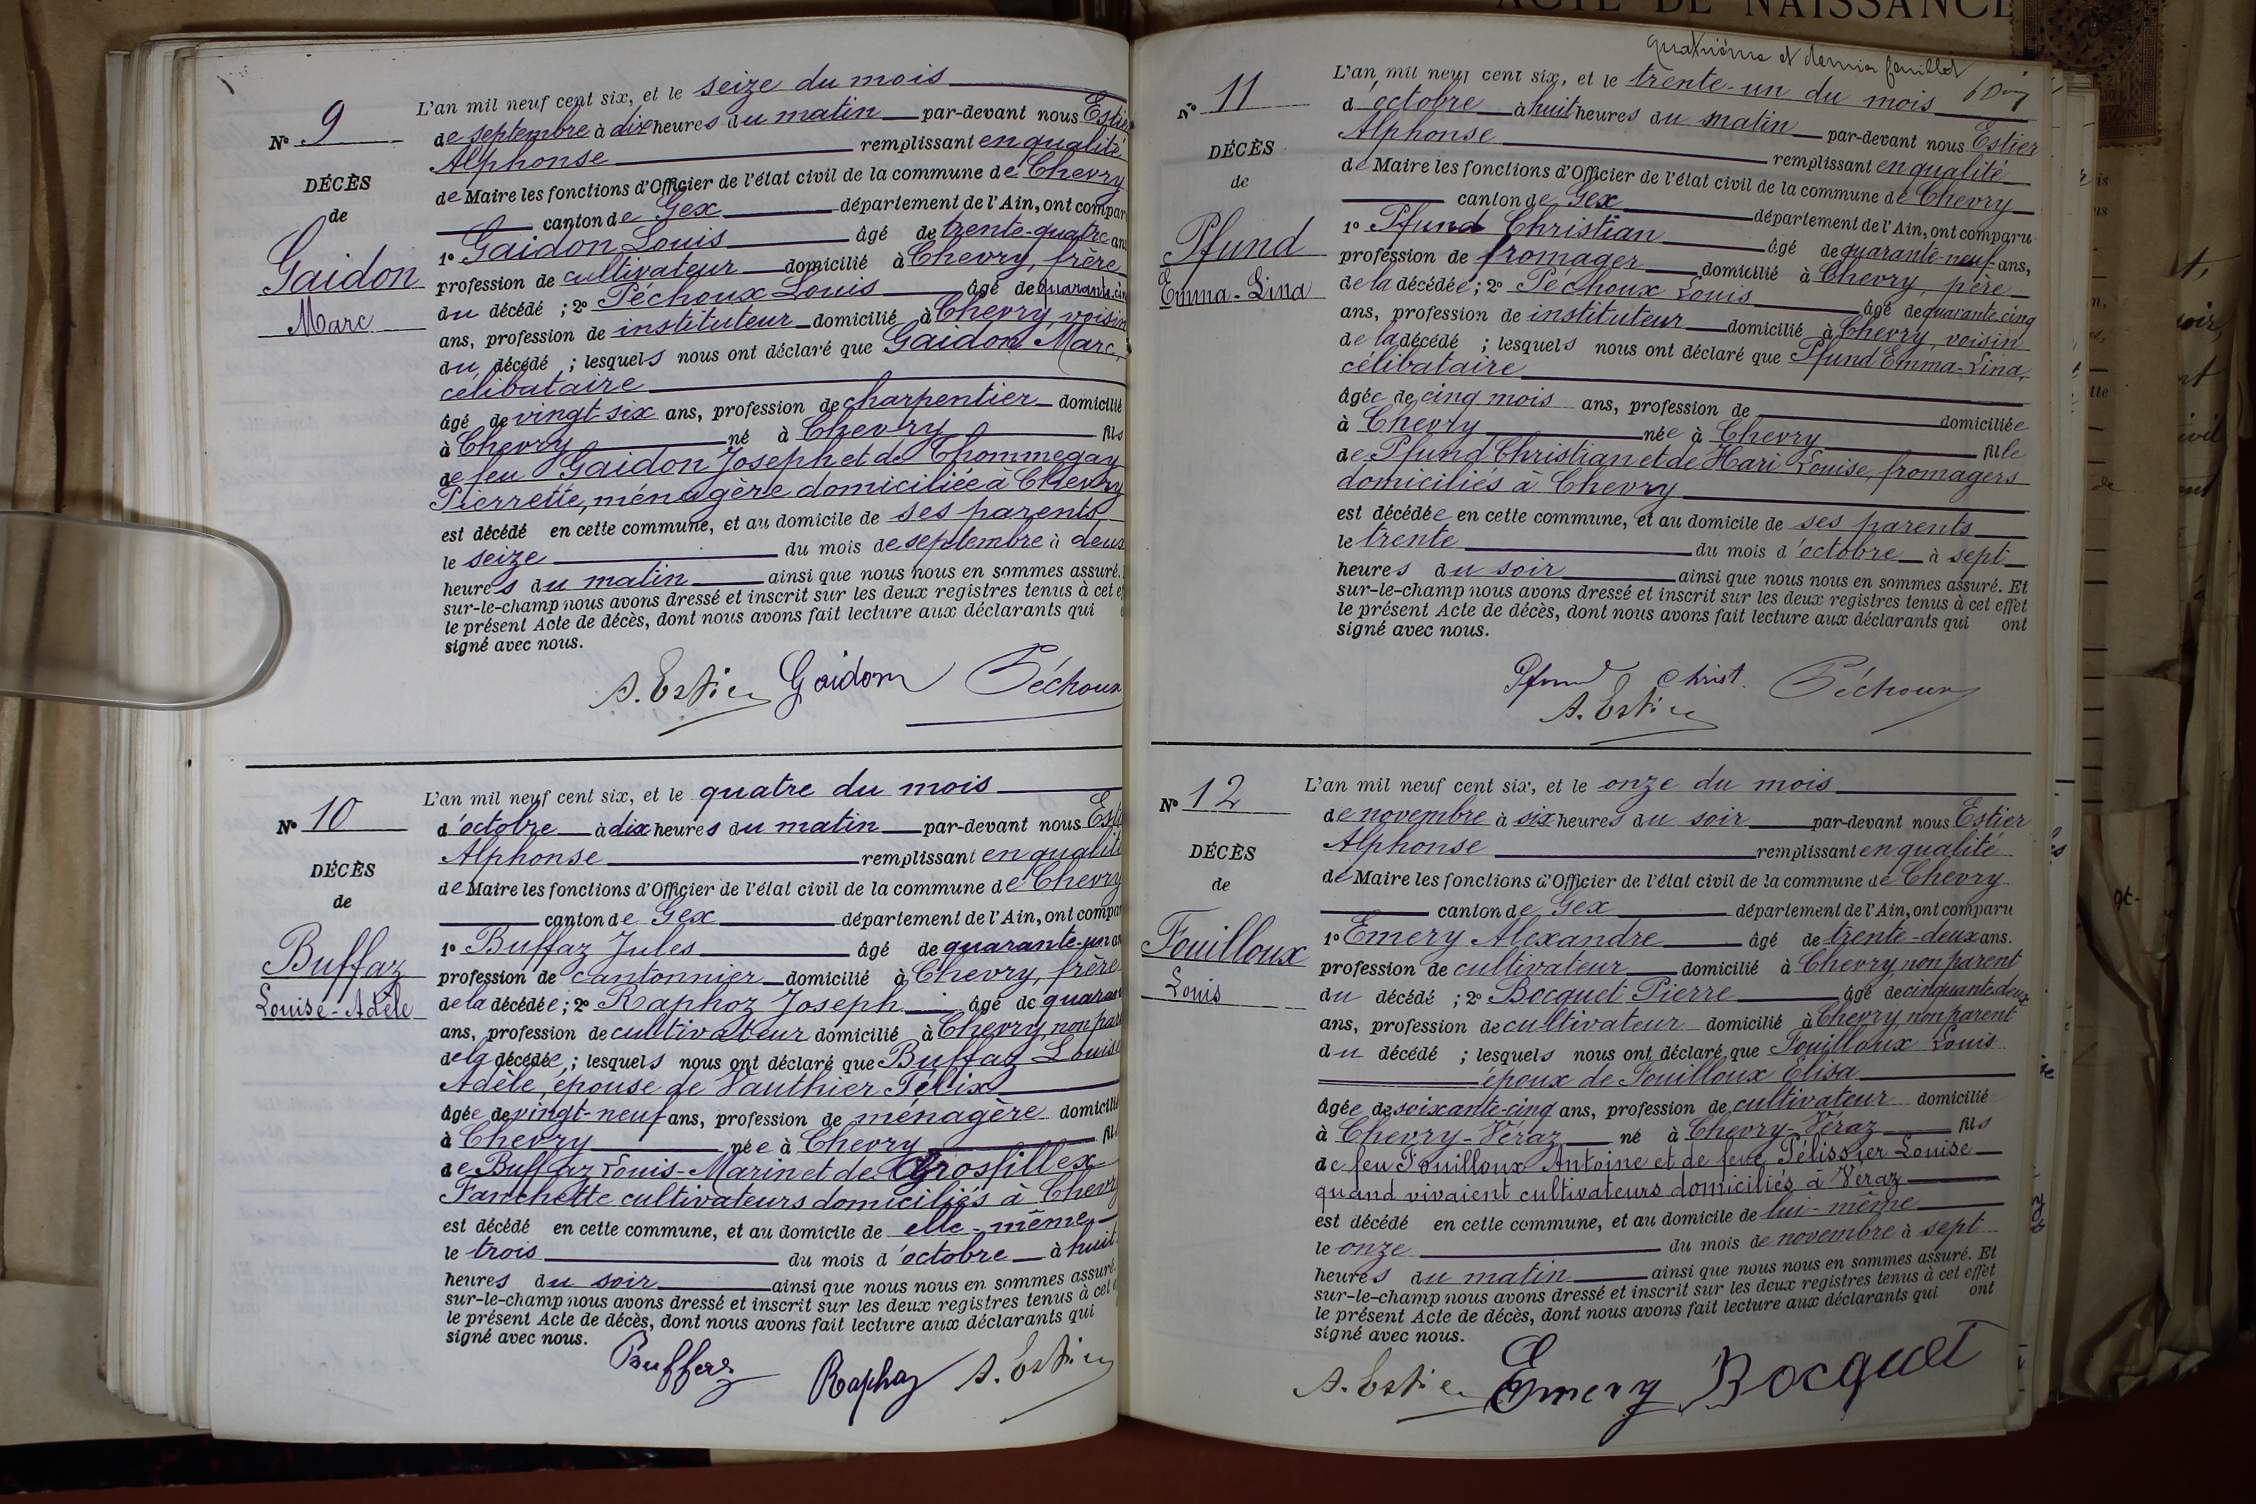 N° 9
DÉCÈS
de
Gaidon
Marc
L'an mil neuf cent six, et le seize du mois
de septembre à dix heures du matin par-devant nous Estier
Alphonse remplissant en qualité
de Maire les fonctions d'Officier de l'état civil de la commune de Chevry
canton de Gex département de l'Ain, ont compar
1° Gaidon Louis âgé de trente-quatre ans
profession de cultivateur domicilié à Chevry, frère
du décédé ; 2° Péchoux Louis âgé de quarante-cin
ans, profession de instituteur domicilié à Chevry, voisin
du décédé ; lesquels nous ont déclaré que Gaidon Marc,
célibataire
âgé de vingt six ans, profession de charpentier domicilié
à Chevry né à Chevry fils
de feu Gaidon Joseph et de Thommegay
Pierrette, ménagère domiciliée à Chevry
est décédé en cette commune, et au domicile de ses parents
le seize du mois de septembre à deux
heures du matin ainsi que nous nous en sommes assuré.
sur-le-champ nous avons dressé et inscrit sur les deux registres tenus à cet ef
le présent Acte de décès, dont nous avons fait lecture aux déclarants qui
signé avec nous.
A. Estier Gaidon Péchoux
N° 10
DÉCÈS
de
Buffaz
Louise-Adèle
L'an mil neuf cent six, et le quatre du mois
d'octobre à dix heures du matin par-devant nous Esti
Alphonse remplissant en qualité
de Maire les fonctions d'Officier de l'état civil de la commune de Chevry
canton de Gex département de l'Ain, ont compar
1° Buffaz Jules âgé de quarante-un an
profession de cantonnier domicilié à Chevry, frère
de la décédée ; 2° Raphoz Joseph âgé de quaran
ans, profession de cultivateur domicilié à Chevry, non par
de la décédée ; lesquels nous ont déclaré que Buffaz Louise
Adèle, épouse de Vauthier Félix
âgée de vingt-neuf ans, profession de ménagère domicilié
à Chevry née à Chevry fil
de Buffaz Louis-Marin et de Grosfillex
Fanchette cultivateurs domiciliés à Chevr
est décédé en cette commune, et au domicile de elle-même
le trois du mois d'octobre à huit
heures du soir ainsi que nous nous en sommes assuré.
sur-le-champ nous avons dressé et inscrit sur les deux registres tenus à cet e
le présent Acte de décès, dont nous avons fait lecture aux déclarants qui
signé avec nous.
Buffaz Raphoz A. Estier
ACTE DE NAISSANCE
quatrième et dernier feuillet
N° 11
DÉCÈS
de
Pfund
Emma-Lina
L'an mil neuf cent six, et le trente-un du mois
d'octobre à huit heures du matin par-devant nous Estier
Alphonse remplissant en qualité
de Maire les fonctions d'Officier de l'état civil de la commune de Chevry
canton de Gex département de l'Ain, ont comparu
1° Pfund Christian âgé de quarante-neuf ans,
profession de fromager domicilié à Chevry, père
de la décédée ; 2° Péchoux Louis âgé de quarante cinq
ans, profession de instituteur domicilié à Chevry, voisin
de la décédé ; lesquels nous ont déclaré que Pfund Emma-Lina,
célibataire
âgée de cinq mois ans, profession de domiciliée
à Chevry née à Chevry fille
de Pfund Christian et de Hari Louise, fromagers
domiciliés à Chevry
est décédée en cette commune, et au domicile de ses parents
le trente du mois d'octobre à sept
heures du soir ainsi que nous nous en sommes assuré. Et
sur-le-champ nous avons dressé et inscrit sur les deux registres tenus à cet effet
le présent Acte de décès, dont nous avons fait lecture aux déclarants qui ont
signé avec nous.
Pfund Christ. Péchoux
A. Estier
N° 12
DÉCÈS
de
Fouilloux
Louis
L'an mil neuf cent six, et le onze du mois
de novembre à six heures du soir par-devant nous Estier
Alphonse remplissant en qualité
de Maire les fonctions d'Officier de l'état civil de la commune de Chevry
canton de Gex département de l'Ain, ont comparu
1° Emery Alexandre âgé de trente-deux ans.
profession de cultivateur domicilié à Chevry, non parent
du décédé ; 2° Bocquet Pierre âgé de cinquante deux
ans, profession de cultivateur domicilié à Chevry non parent
du décédé ; lesquels nous ont déclaré que Fouilloux Louis
époux de Fouilloux Elisa
âgée de soixante-cinq ans, profession de cultivateur domicilié
à Chevry-Véraz né à Chevry-Véraz fils
de feu Fouilloux Antoine et de feue Pélissier Louise
quand vivaient cultivateurs domiciliés à Véraz
est décédé en cette commune, et au domicile de lui-même
le onze du mois de novembre à sept
heures du matin ainsi que nous nous en sommes assuré. Et
sur-le-champ nous avons dressé et inscrit sur les deux registres tenus à cet effet
le présent Acte de décès, dont nous avons fait lecture aux déclarants qui ont
signé avec nous.
A. Estier Emery Bocquet